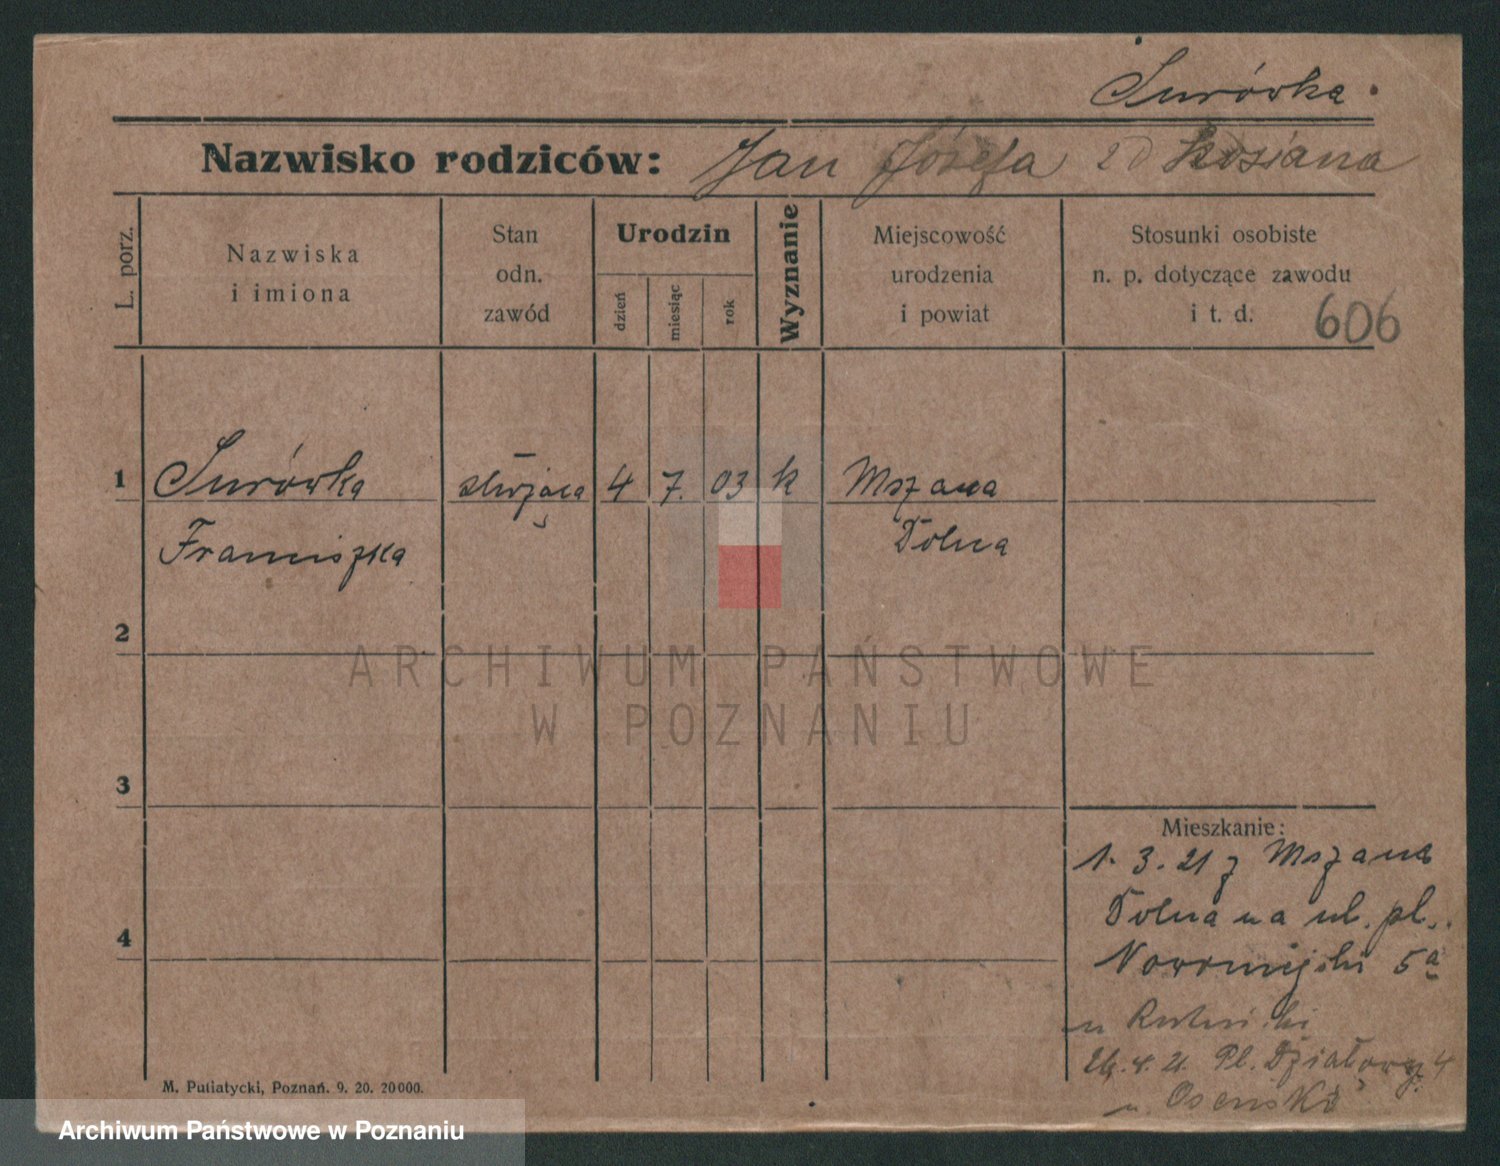 Surówka.
Nazwisko rodziców: Jan Józefa zd
L. porz.
Nazwiska
i imiona
Stan
odn.
zawód
Urodzin
dzień
miesiąc
rok
Wyznanie
Miejscowość
urodzenia
i powiat
Stosunki osobiste
n. p. dotyczące zawodu
i t. d.
606
1 Surówka służąca 4 7. 03 k Mszana
Franciszka Dolna
2
ARCHIWUM PAŃSTWOWE
W POZNANIU
3
Mieszkanie:
1. 3. 21 z Mszana
Dolna na ul. pl.
4
Nowomiejski 5a
u
26.4.21. Pl. Działowy 4
u. Osinski
M. Putiatycki, Poznań. 9. 20. 20000.
Archiwum Państwowe w Poznaniu